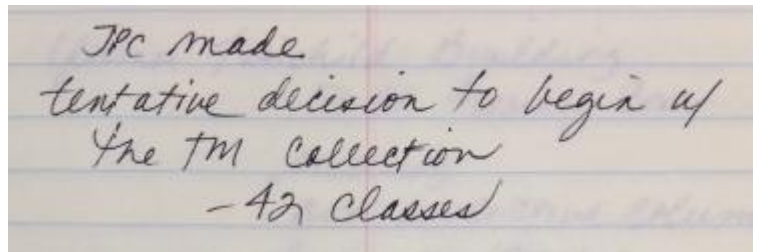 JPC made
tentative decision to begin w/
the TM Collection
- 42 Classes